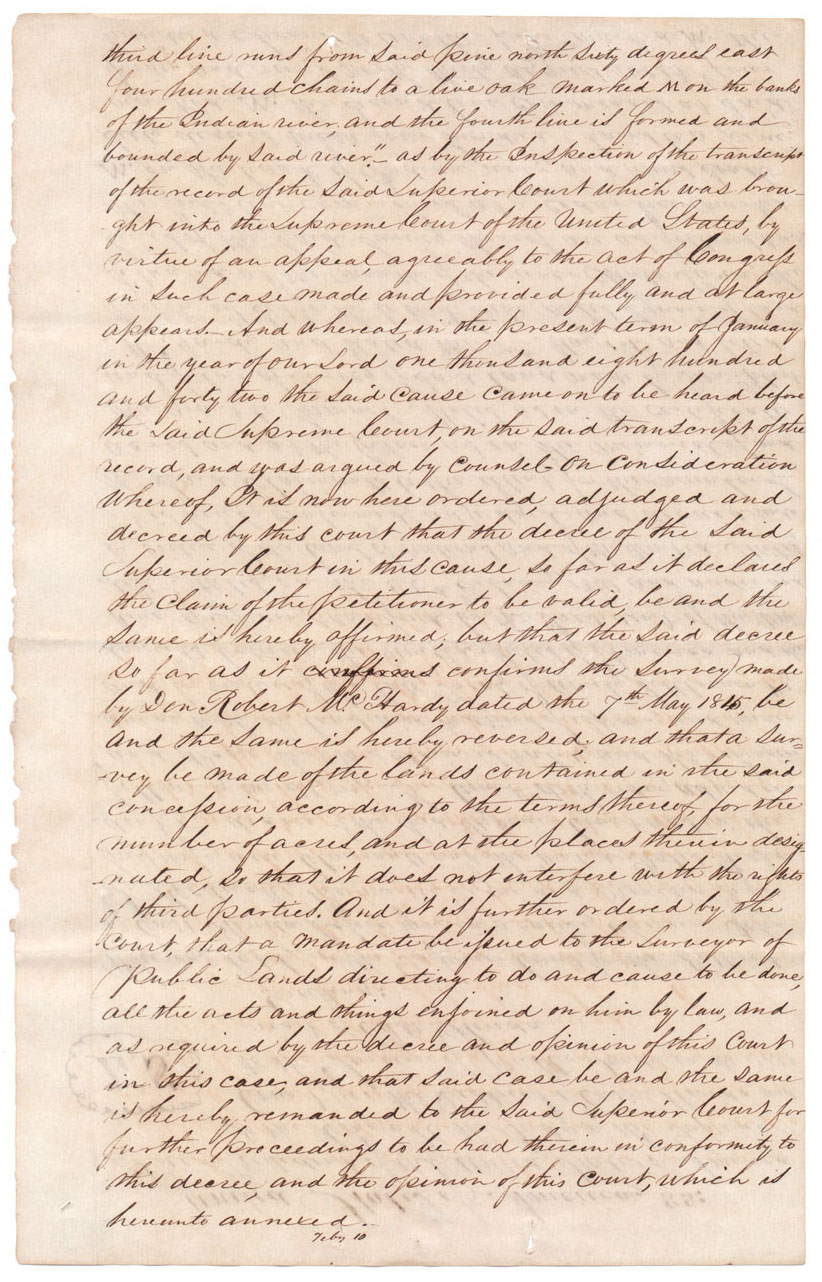 third line runs from said pine north sixty degrees east
four hundred chains to a live oak marked M on the banks
of the Indian river, and the fourth line is formed and
bounded by said river"_ as by the Inspection of the transcript
of the record of the said Superior Court which was brou-
-ght into the Supreme Court of the United States, by
virtue of an appeal, agreeably to the act of Congress
in such case made and provided fully and at large
appears_ And whereas, in the present term of January
in the year of our Lord one thousand eight hundred
and forty two the said cause came on to be heard before
the said Supreme Court, on the said transcript of the
record, and was argued by counsel- On consideration
whereof, It is now here ordered, adjudged and
decreed by this court that the decree of the said
Superior Court in this cause, so far as it declares
the claim of the petitioner to be valid, be and the
same is hereby affirmed; but that the said decree
so far as it confirms confirms the survey made
by Don Robert McHardy dated the 7th May 1815, be
and the same is hereby reversed; and that a sur=
-vey be made of the lands contained in the said
concession, according to the terms thereof, for the
number of acres, and at the places therein desig-
-nated, so that it does not interfere with the rights
of third parties. And it is further ordered by the
court, that a mandate be issued to the surveyor of
public Lands directing to do and cause to be done,
all the acts and things enjoined on him by law, and
as required by the decree and opinion of this Court
in this case, and that said case be and the same
is hereby remanded to the said Superior Court for
further proceedings to be had therein in conformity to
this decree, and the opinion of this court, which is
hereunto annexed._
Feby 10